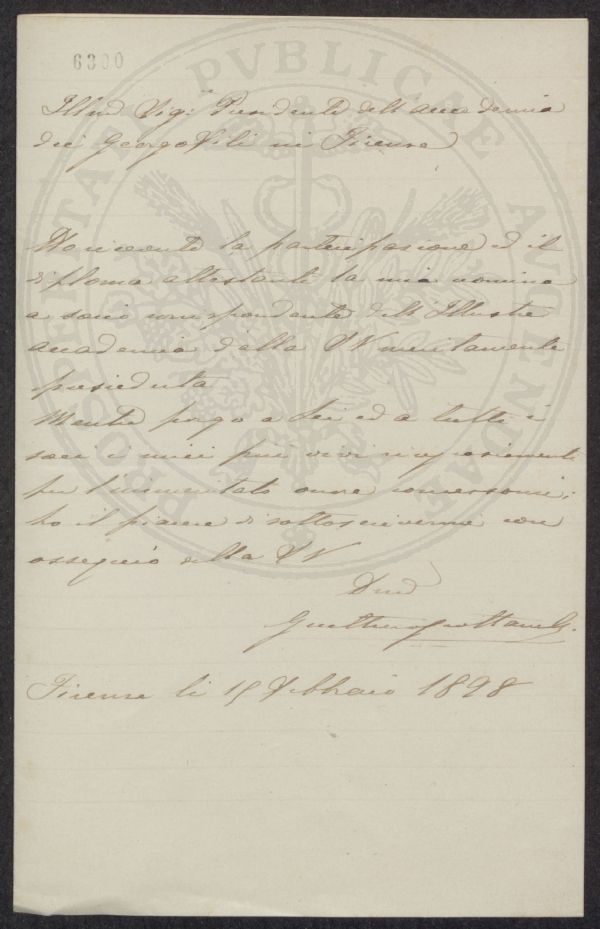 6300
Illmo Sigr Presidente dell'accademia
dei Georgofili in Firenze
Ho ricevuto la partecipazione ed il
diploma attestanti la mia nomina
a socio corrispondente dell'Illustre
accademia dalla SV meritamente
presieduta
Mentre porgo a Lei ed a tutti i
soci i miei più vivi ringraziamenti
per l'immeritato onore
ho il piacere di sottoscrivermi con
ossequio della SV
Firenze li 15 Febbraio 1898
PROSPERITATI PVBLICAE AVGENDAE